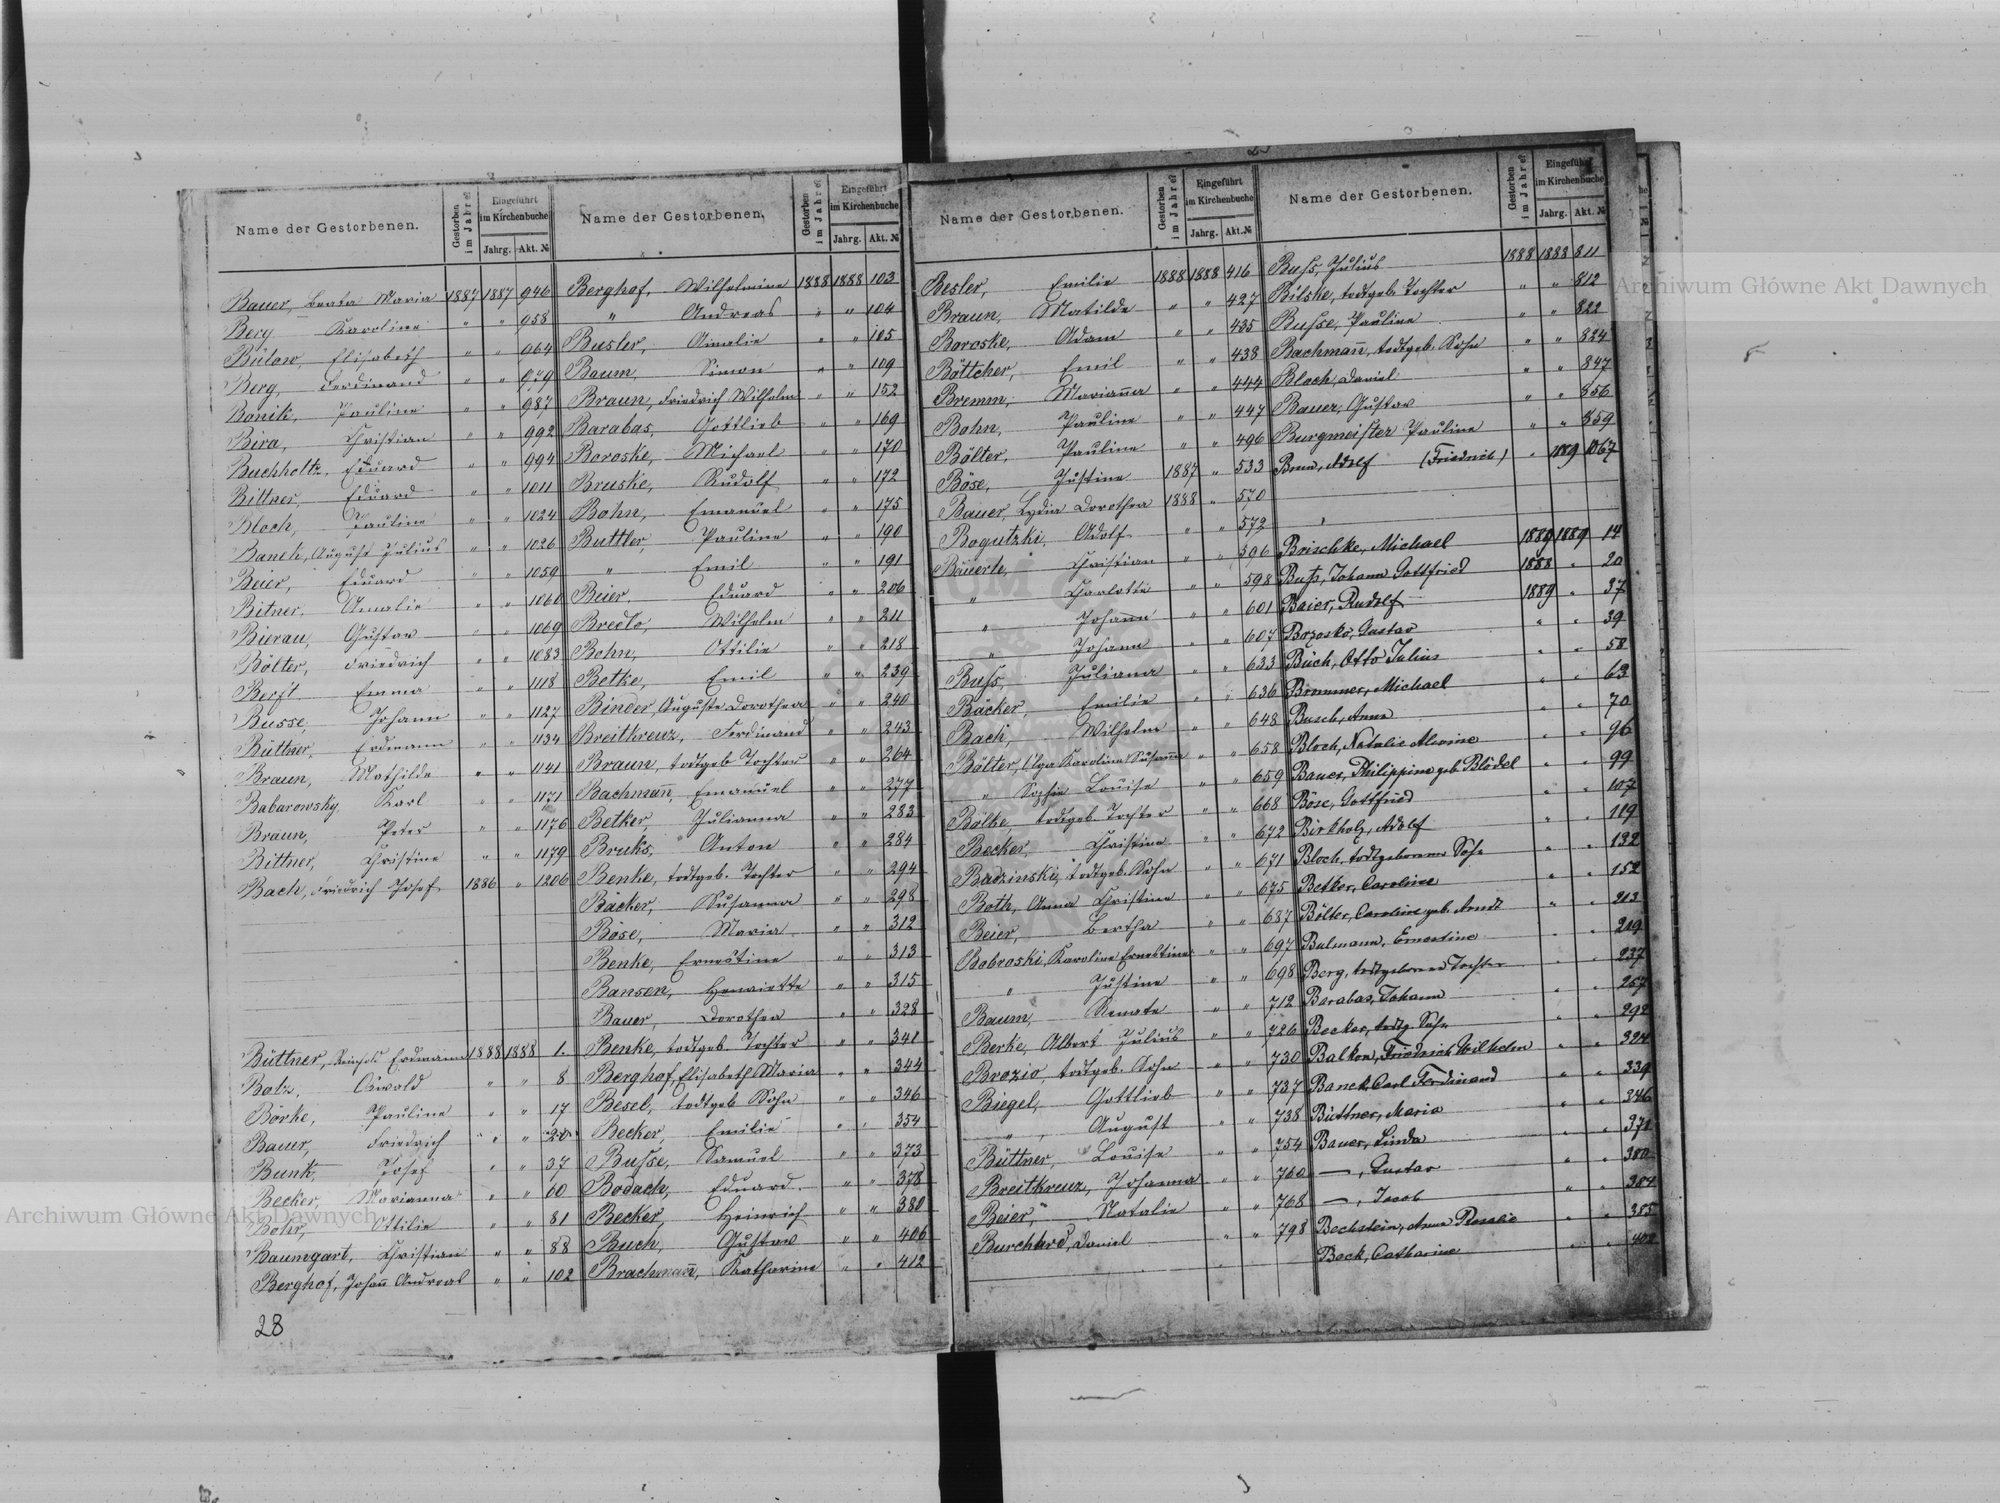 Name der Gestorbenen. Gestorben im Jahre Eingeführt im Kirchenbuche Jahrg. Akt. №
Bauer, Beata Maria 1887 1887 946
Berg Karoline " " 958
Bülow, Elisabeth " " 964
Berg, Ferdinand " " 979
Bonik, Pauline " " 987
Bira, Christian " " 992
Buchholtz, Eduard " " 994
Bittner, Eduard " " 1011
Bloch, Pauline " " 1024
Banek, August Julius " " 1026
Beier, Eduard " " 1059
Bitner, Amalie " " 1060
Bierau, Gustav " " 1069
Bölter, Friedrich " " 1083
Berft Emma " " 1118
Busse, Johann " " 1127
Büttner, Erdmann " " 1134
Braun, Mathilde " " 1141
Babarowsky, Karl " " 1171
Braun, Peter " " 1176
Bittner, Christine " " 1179
Bach, Friedrich Josef 1886 " 1206
Büttner, Reinhold Erdmann 1888 1888 1.
Botz, Oswald " " 8
Börke, Pauline " " 17
Bauer, Friedrich " " 20
Bunk, Josef " " 37
Becker, Marianna " " 60
Bohr, Ottilie " " 81
Baumgart, Christian " " 88
Berghof, Johañ Andreas " " 102
28
Name der Gestorbenen. Gestorben im Jahre Eingeführt im Kirchenbuche Jahrg. Akt. №
Berghof, Wilhelmine 1888 1888 103
" Andreas " " 104
Busler, Amalie " " 105
Baum, Simon " " 109
Braun, Friedrich Wilhelm " " 152
Barabas, Gottlieb " " 169
Boroske, Michael " " 170
Bruske, Rudolf " " 172
Bohn, Emanuel " " 175
Buttler, Pauline " " 190
" Emil " " 191
Beier, Eduard " " 206
Bredlo, Wilhelm " " 211
Bohn, Ottilie " " 218
Betke, Emil " " 239
Binder, Auguste Dorothea " " 240
Breitkreuz, Ferdinand " " 243
Braun, todtgeb Tochter " " 264
Bachman, Emanuel " " 277
Betker, Julianna " " 283
Bruks, Anton " " 284
Benke, todtgeb. Tochter " " 294
Bäcker, Susanna " " 298
Bose, Maria " " 312
Benke, Ernestine " " 313
Bansen, Henriette " " 315
Bauer, Dorothea " " 328
Benke, todtgeb. Tochter " " 341
Berghof, Elisabeth Maria " " 344
Besel, todtgeb Sohn " " 346
Becker, Emilie " " 354
Busse, Samuel " " 373
Bodach, Eduard " " 378
Becker, Heinrich " " 380
Buch, Gustav " " 406
Brachmañ, Katharina " " 412
Name der Gestorbenen. Gestorben im Jahre Eingeführt im Kirchenbuche Jahrg. Akt. №
Besler, Emilie 1888 1888 416
Braun, Matilde " " 427
Boroske, Adam " " 435
Böttcher, Emil " " 438
Bremm, Mariaña " " 444
Bohn, Pauline " " 447
Bölter, Pauline " " 496
Böse, Justine 1887 " 533
Bauer, Lydia Dorothea 1888 " 570
Bogutzki, Adolf " " 572
Bäuerle, Christian " " 596
" Charlotte " " 598
" Johann " " 601
" Johann " " 607
Buss, Juliana " " 633
Bäcker, Emilie " " 636
Bach, Wilhelm " " 648
Bölter, Olga Karoline Susaña " " 658
" Sophie Louise " " 659
Bölke, todtgeb. Tochter " " 668
Becker, Christine " " 672
Badzinski, todtgeb. Sohn " " 671
Both, Anna Christine " " 675
Beier, Bertha " " 687
Bobroski, Karoline Ernestine " " 697
" Justine " " 698
Baum, Renate " " 712
Berke, Albert Julius " " 726
Brozio, todtgeb. Sohn " " 730
Biegel, Gottlieb " " 737
" August " " 738
Büttner, Louise " " 754
Breitkreuz, Johanna " " 760
Beier, Natalie " " 768
Burchard, Daniel " " 798
Name der Gestorbenen. Gestorben im Jahre Eingeführt im Kirchenbuche Jahrg. Akt. №
Buss, Julius 1888 1888 811
Bilske, todtgeb Tochter " " 812
Busse, Pauline " " 822
Bachmañ, todtgeb. Sohn " " 824
Bloch, Daniel " " 847
Bauer, Gustav " " 856
Burgmeister Pauline " " 859
Adolf (Friedrich) " 1889 1067
Brischke, Michael 1889 1889 14
Buss, Johann Gottfried 1888 " 20
Baier, Rudolf 1889 " 37
Brzosko, Gustav " " 39
Buch, Otto Julius " " 58
Brommer, Michael " " 63
Busch, Anna " " 70
Bloch, Natalie Alwine " " 96
Bauer, Philippine geb. Blödel " " 99
Böse, Gottfried " " 107
Birkholz, Adolf " " 119
Bloch, todtgeborener Sohn " " 132
Betker, Caroline " " 152
Bölter, Caroline geb. Arndt " " 213
Bulmann, Ernestine " " 219
Berg, todtgeborene Tochter " " 237
Barabas, Johann " " 257
Becker, todtg. Sohn " " 292
Balkon, Friedrich Wilhelm " " 324
Banek, Carl Ferdinand " " 339
Büttner, Maria " " 346
Bauer, Linda " " 371
—, Gustav " " 380
—, Jacob " " 384
Bechstein, Anna Rosalie " " 385
Beck, Catharine " " 400
Archiwum Główne Akt Dawnych
Archiwum Główne Akt Dawnych